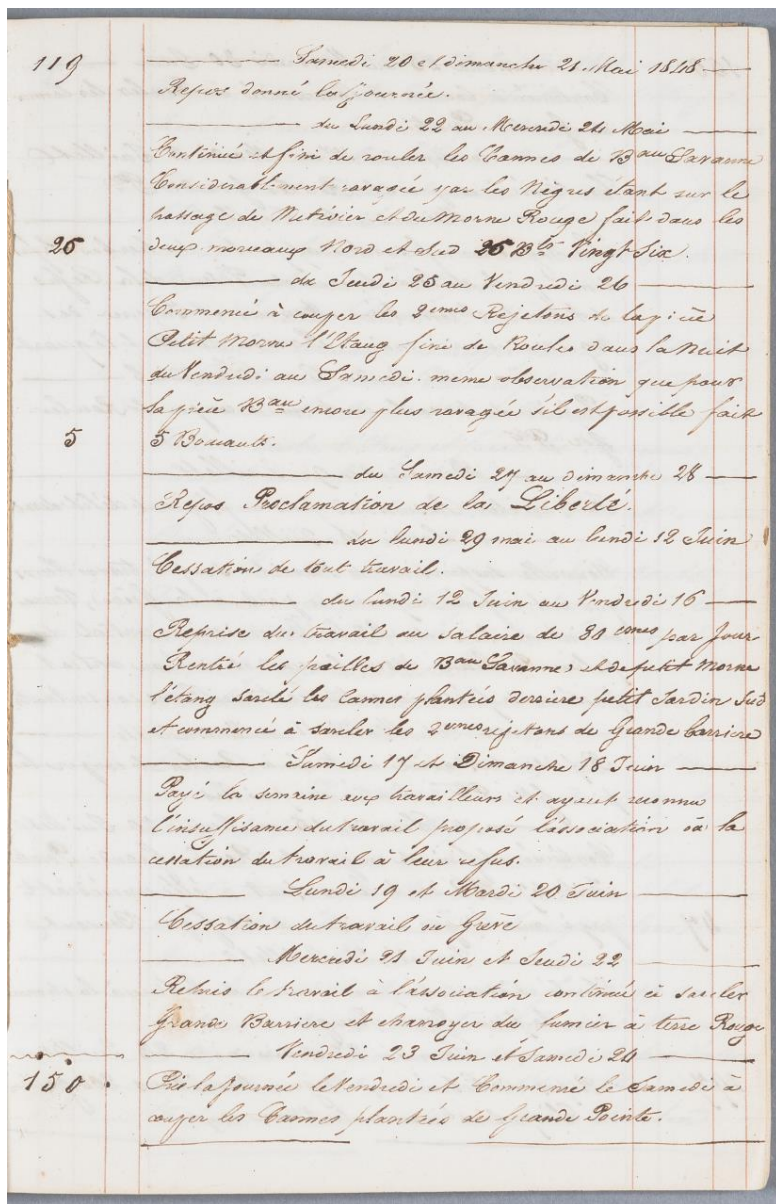 119 Samedi 20 et dimanche 21 Mai 1848
Repos donné la journée.
du Lundi 22 au Mercredi 24 Mai
Continué et fini de rouler les Cannes de Bau Savanne
Considerablement ravagée par les Nègres étant sur le
passage de Mitivier et du Morne Rouge fait dans les
26 deux morceaux Nord et Sud 26 Bts Vingt Six.
du Jeudi 25 au Vendredi 26
Commencé à couper les 2emes Rejetons de la pièce
Petit Morne l'Etang fini de Rouler dans la Nuit
du Vendredi au Samedi. meme observation que pour
la pièce Bau encore plus ravagée s'il est possible fait
5 5 Boucauts.
du Samedi 27 au dimanche 28
Repos Proclamation de la Liberté.
du lundi 29 mai au lundi 12 Juin
Cessation de tout travail.
du lundi 12 Juin au Vendredi 16
Reprise du travail au salaire de 80 cmes par Jour
les pailles de Bau Savanne, et de petit Morne
l'étang sarclé les Cannes plantées derriere petit Jardin Sud
et commencé à sarcler les 2emes rejetons de Grande Barriere
Samedi 17 et Dimanche 18 Juin
Payé la semaine aux travailleurs et ayant reconnu
l'insuffisance du travail proposé l'association où la
cessation du travail à leur refus.
Lundi 19 et Mardi 20 Juin
Cessation du travail où Grève
Mercredi 21 Juin et Jeudi 22
Repris le travail à l'association continué à sarcler
Grande Barriere et charroyer du fumier à terre Rouge
Vendredi 23 Juin et Samedi 24
150. la Journée le Vendredi et Commencé le Samedi à
couper les Cannes plantées de Grande Pointe.